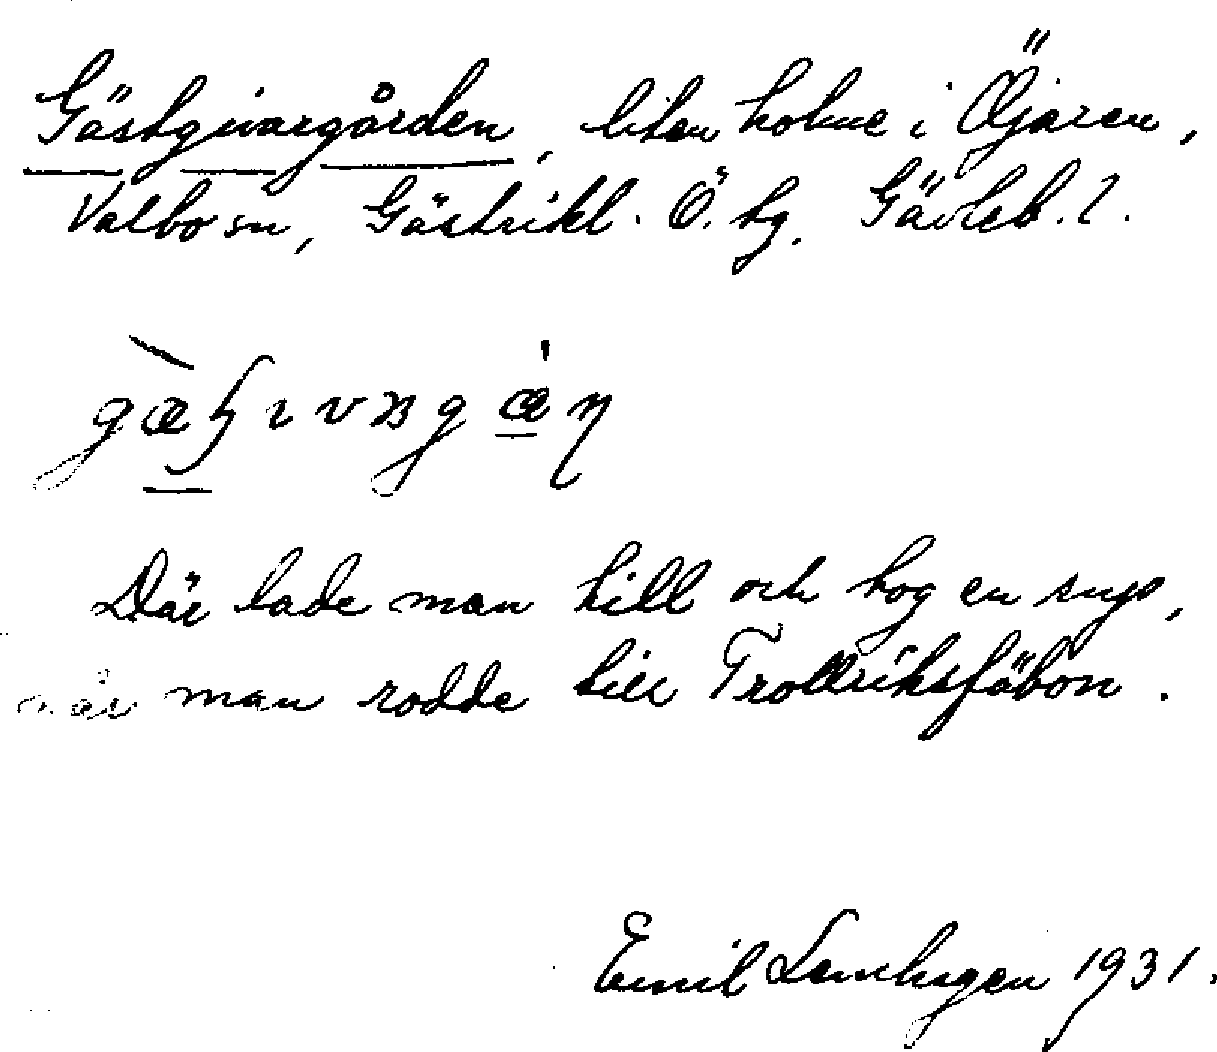 Gästgivargården, liten holme i Öjaren,
Valbo sn, Gästrikl. Ö. tg. Gävleb. l.
Där lade man till och tog en sup,
när man rodde till Trollriksfäbon.
Emil Lenhagen 1931.